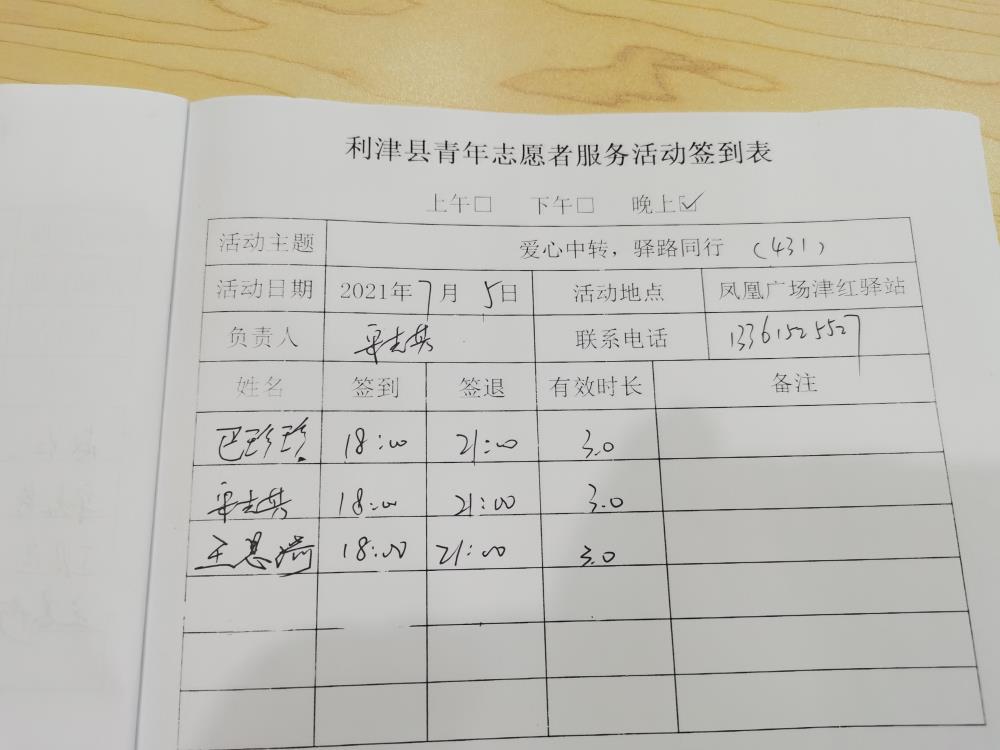 利津县青年志愿者服务活动签到表
上午□ 下午□ 晚上☑
活动主题 爱心中转，驿路同行 （431）
活动日期 2021年7月5日 活动地点 凤凰广场津红驿站
负责人 联系电话 13361525527
姓名 签到 签退 有效时长 备注
巴珍珍 18:00 21:00 3.0
18:00 21:00 3.0
18:00 21:00 3.0